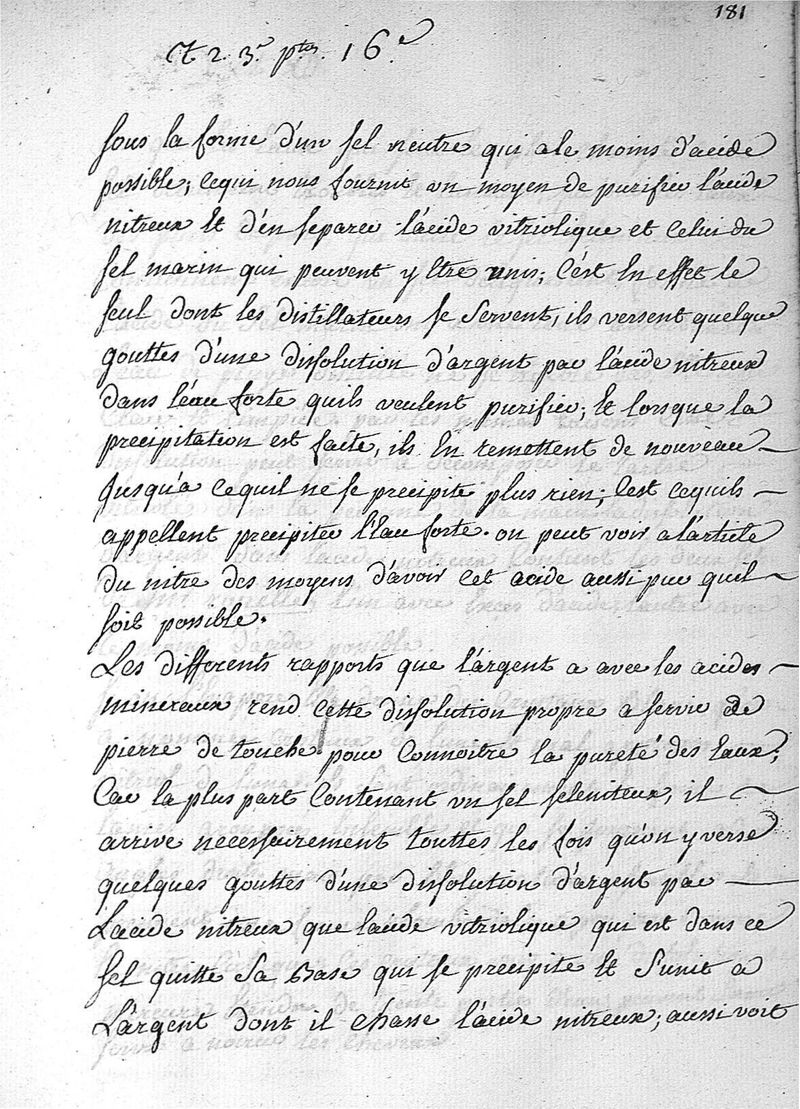 181
T 2. 3.e ptie. 16.e
sous la forme d'un sel neutre qui a le moins d'acide
possible; cequi nous fournit un moyen de purifier l'acide
nitreux Et d'en separer l'acide vitriolique et celui du
sel marin qui peuvent y Etre unis; C'est En effet le
seul dont les distillateurs se servent, ils versent quelque
gouttes d'une dissolution d'argent par l'acide nitreux
dans l'eau forte quils veulent purifier; Et lorsque la
precipitation est faite, ils En remettent de nouveau
Jusqu'a cequil ne se precipite plus rien; C'est cequils
appellent precipiter l'Eau forte. on peut voir a l'article
du nitre des moyens d'avoir cet acide aussi pur quil
soit possible.
Les differents rapports que l'argent a avec les acides
mineraux rend cette dissolution propre a servir de
pierre de touche pour Connoitre la pureté des Eaux;
Car la plus part Contenant un sel seleniteux, il
arrive necessairement touttes les fois qu'on y verse
quelques gouttes d'une dissolution d'argent par
L'acide nitreux que lacide vitriolique qui est dans ce
sel quitte sa Base qui se precipite Et S'unit a
L'argent dont il chasse l'acide nitreux; aussi voit